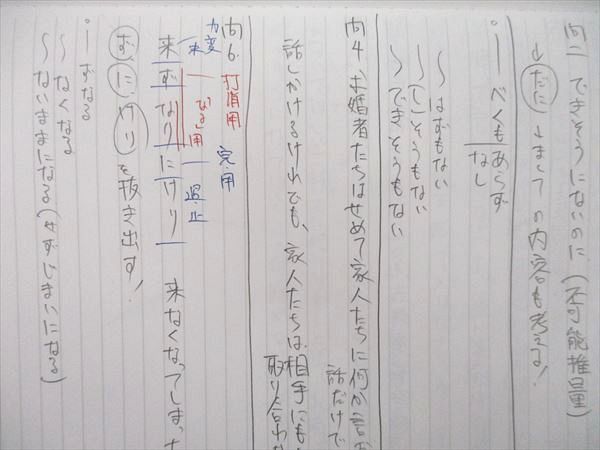 問二 できそうにないのに(不可能推量)
↓だに→まして の内容も考える!
・べくもあらず
なし
〜はずもない
〜(し)そうもない
〜できそうもない
問4.求婚者たちはせめて家人たちに何か言お
話だけで
話しかけるけれでも、家人たちは、相手にも
取り合わ
問6.打消用 完・用
カ変未 なる用 過・止
来ずなりにけり 来なくなってしまった
ず に けり を抜き出す!
・ずなる
〜なくなる
〜ないままになる(せずじまいになる)